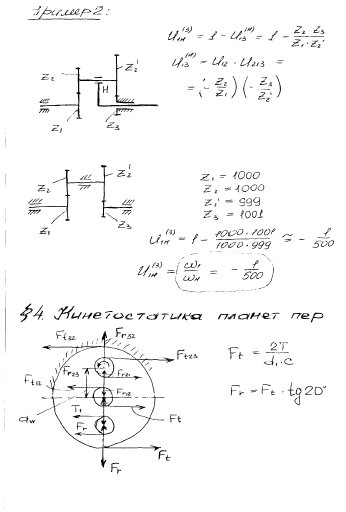 Пример 2:
U₁ₕ⁽³⁾ = 1 - U₁₃⁽ᴴ⁾ = 1 - Z₂·Z₃ / Z₁·Z₂'
U₁₃⁽ᴴ⁾ = U₁₂ · U₂'₃ =
= (- Z₂/Z₁)(- Z₃/Z₂')
Z₂ Z₂'
H
Z₁ Z₃
Z₂ Z₂'
Z₁ Z₃
Z₁ = 1000
Z₂ = 1000
Z₂' = 999
Z₃ = 1001
U₁ₕ⁽³⁾ = 1 - 1000·1001 / 1000·999 ≈ - 1/500
U₁ₕ⁽³⁾ = ω₁/ωₕ = - 1/500
§4. Кинетостатика планет пер
Ft32 Fr32
Ft23
Fr23 Fr21
Ft12 Fr12
dw T₁ Ft
Fr
Fr Ft
Ft = 2T / d₁·c
Fr = Ft · tg20°